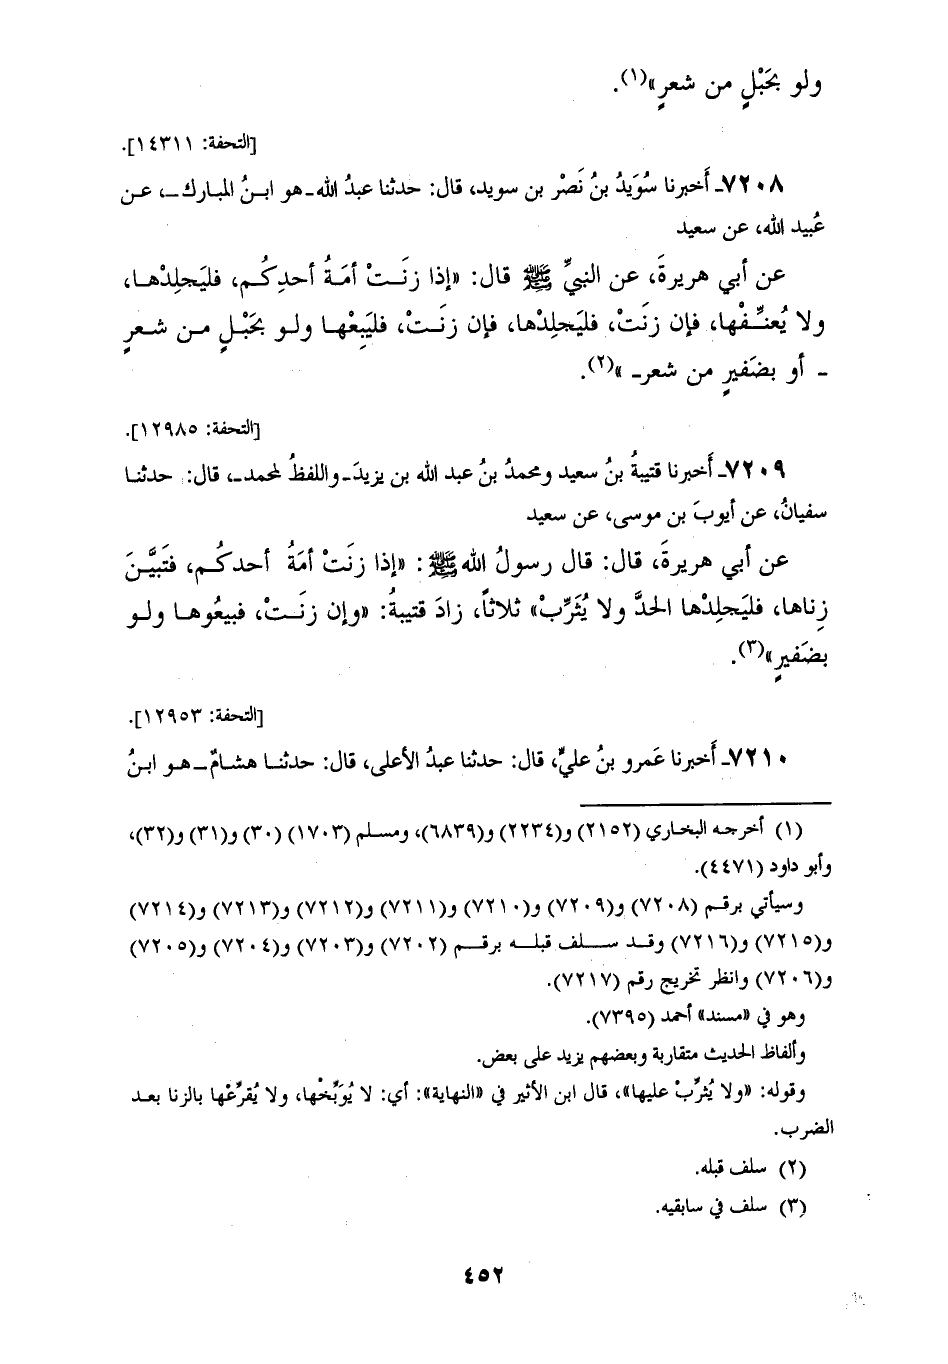 ولو بحَبْلٍ من شعرٍ»(١).
[التحفة: ١٤٣١١].
٧٢٠٨ـ أَخبرنا سُوَيدُ بنُ نَصْر بن سويد، قال: حدثنا عبدُ الله ـ هو ابـنُ المبارك ـ، عـن
عُبيد الله، عن سعيد
عن أبي هريرةَ، عن النبيِّ ﷺ قال: «إذا زنَـتْ أمَـةُ أحدِكُـم، فليَجلِدْهـا،
ولا يُعنـِّفْها، فإن زنَتْ، فليَجلِدْها، فإن زنَـتْ، فليَبِعْهـا ولـو بحَبْـلٍ مـن شـعرٍ
ـ أو بضَفيرٍ من شعر ـ»(٢).
[التحفة: ١٢٩٨٥].
٧٢٠٩ـ أَخبرنا قتيبةُ بنُ سعيد ومحمدُ بنُ عبد الله بن يزيدَ ـ واللفظُ لمحمد ـ، قال: حدثنـا
سفيانُ، عن أيوبَ بن موسى، عن سعيد
عن أبي هريرةَ، قال: قال رسولُ الله ﷺ: «إذا زنَتْ أمَةُ أحدكُـم، فتَبيَّـنَ
زِناها، فليَجلِدْها الحدَّ ولا يُثَرِّبْ» ثلاثاً، زادَ قتيبةُ: «وإن زنَـتْ، فبيعُوهـا ولـو
بضَفيرٍ»(٣).
[التحفة: ١٢٩٥٣].
٧٢١٠ـ أَخبرنا عَمرو بنُ عليٍّ، قال: حدثنا عبدُ الأعلى، قال: حدثنـا هشـامٌ ـ هـو ابـنُ
(١) أخرجـه البخـاري (٢١٥٢) و(٢٢٣٤) و(٦٨٣٩)، ومسلم (١٧٠٣) (٣٠) و(٣١) و(٣٢)،
وأبو داود (٤٤٧١).
وسيأتي برقـم (٧٢٠٨) و(٧٢٠٩) و(٧٢١٠) و(٧٢١١) و(٧٢١٢) و(٧٢١٣) و(٧٢١٤)
و(٧٢١٥) و(٧٢١٦) وقـد سـلـف قبلـه برقـم (٧٢٠٢) و(٧٢٠٣) و(٧٢٠٤) و(٧٢٠٥)
و(٧٢٠٦) وانظر تخريج رقم (٧٢١٧).
وهو في «مسند» أحمد (٧٣٩٥).
وألفاظ الحديث متقاربة وبعضهم يزيد على بعض.
وقوله: «ولا يُثرِّبْ عليها»، قال ابن الأثير في «النهاية»: أي: لا يُوَبِّخْها، ولا يُقرِّعْها بالزنا بعـد
الضرب.
(٢) سلف قبله.
(٣) سلف في سابقيه.
٤٥٢